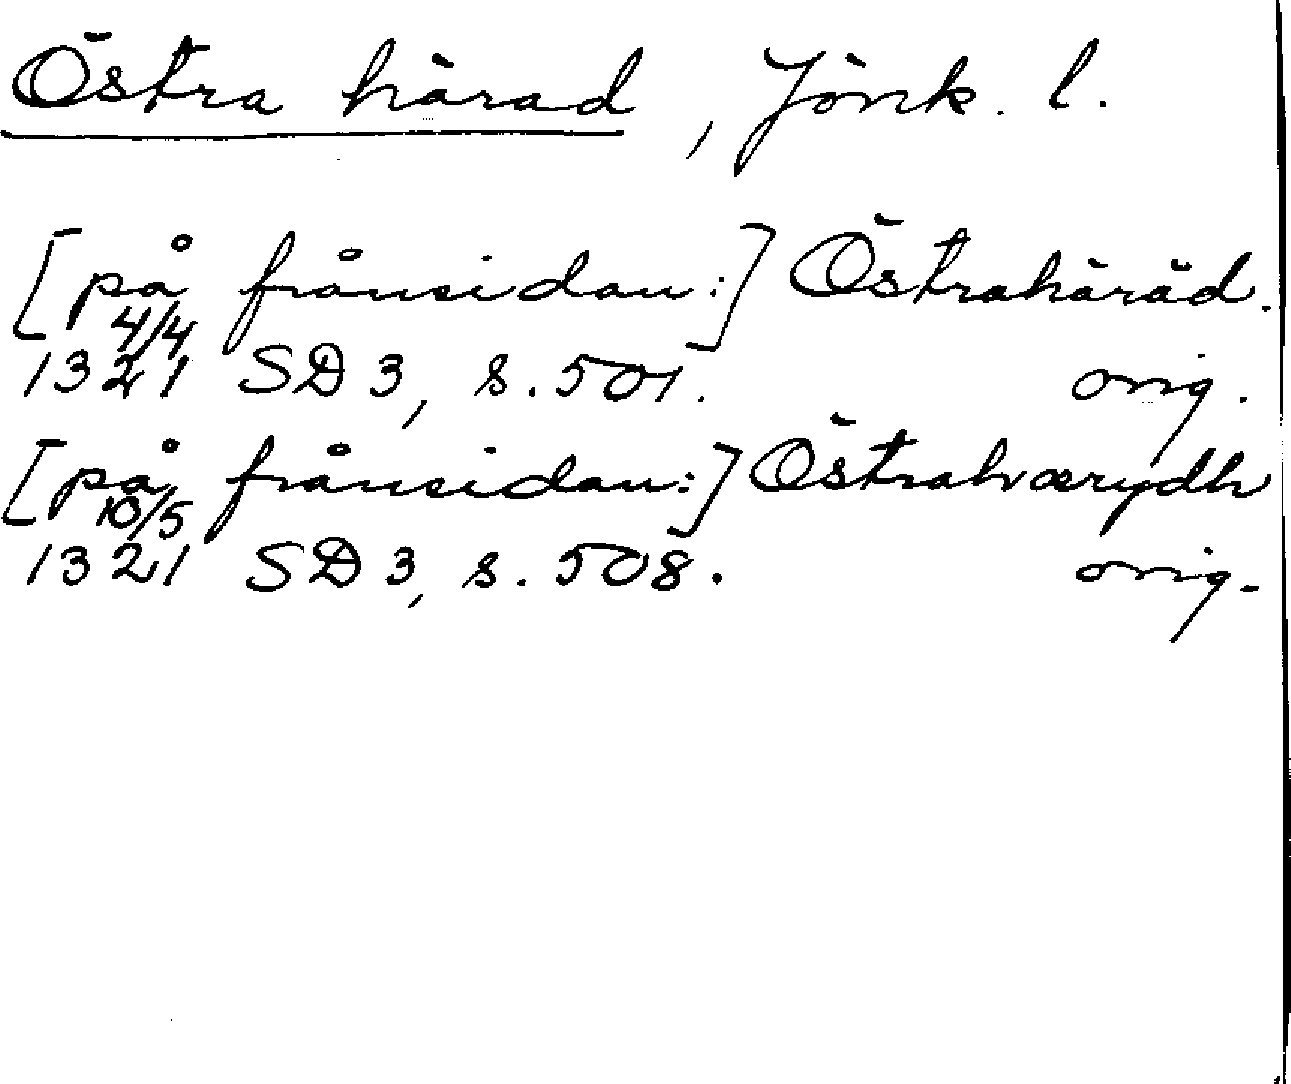 Östra härad, Jönk. l.
[på frånsidan:] Östrahäräd.
4/4
1321 SD 3, s. 501. orig.
[på frånsidan:] Östrahærydh
10/5
1321 SD 3, s. 508. orig.